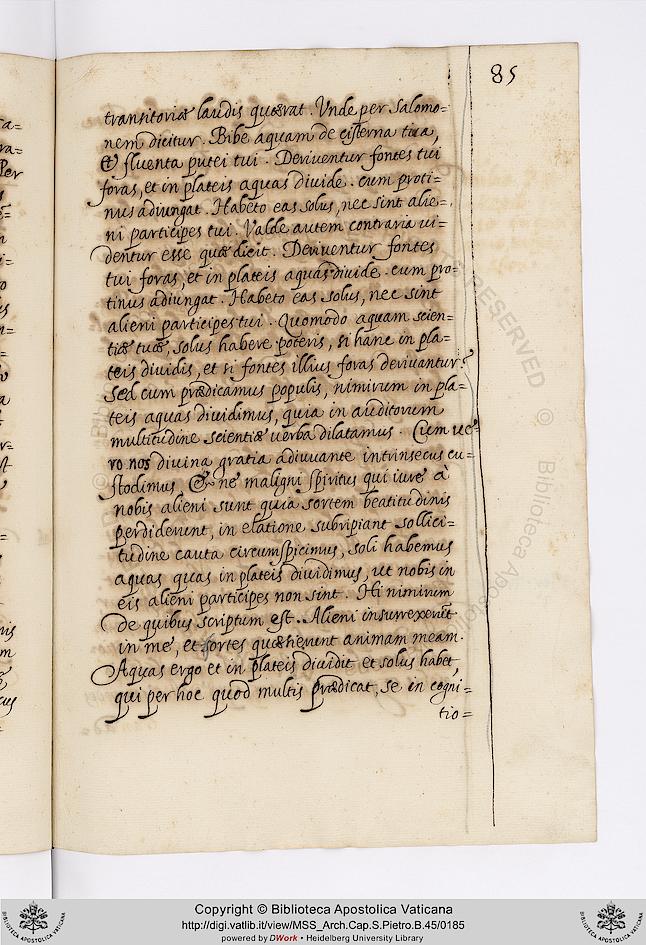 85
transitoriæ laudis quærat. Unde per Salomo=
nem dicitur. Bibe aquam de cisterna tua,
& fluenta putei tui. Deriventur fontes tui
foras, et in plateis aquas divide. cum proti=
nus adiungat. Habeto eas solus, nec sint alie=
ni participes tui. Valde autem contraria vi=
dentur esse quæ dicit. Deriventur fontes
tui foras, et in plateis aquas divide. cum pro=
tinus adiungat. Habeto eas solus, nec sint
alieni participes tui. Quomodo aquam scien=
tiæ tuæ, solus habere poteris, si hanc in pla=
teis dividis, et si fontes illius foras derivantur?
Sed cum prædicamus populis, nimirum in pla=
teis aquas dividimus, quia in auditorum
multitudine scientiæ verba dilatamus. Cum ve=
ro nos divina gratia adiuvante intrinsecus cu=
stodimus, & ne maligni spiritus qui iure à
nobis alieni sunt quia sortem beatitudinis
perdiderunt, in elatione subripiant sollici=
tudine cauta circumspicimus, soli habemus
aquas quas in plateis dividimus, ut nobis in
eis alieni participes non sint. Hi nimirum
de quibus scriptum est. Alieni insurrexerūt
in me, et fortes quæsierunt animam meam.
Aquas ergo et in plateis dividit et solus habet,
qui per hoc quod multis prædicat, se in cogni=
tio=
RESERVED © Biblioteca Apostol
Copyright © Biblioteca Apostolica Vaticana
http://digi.vatlib.it/view/MSS_Arch.Cap.S.Pietro.B.45/0185
powered by DWork • Heidelberg University Library